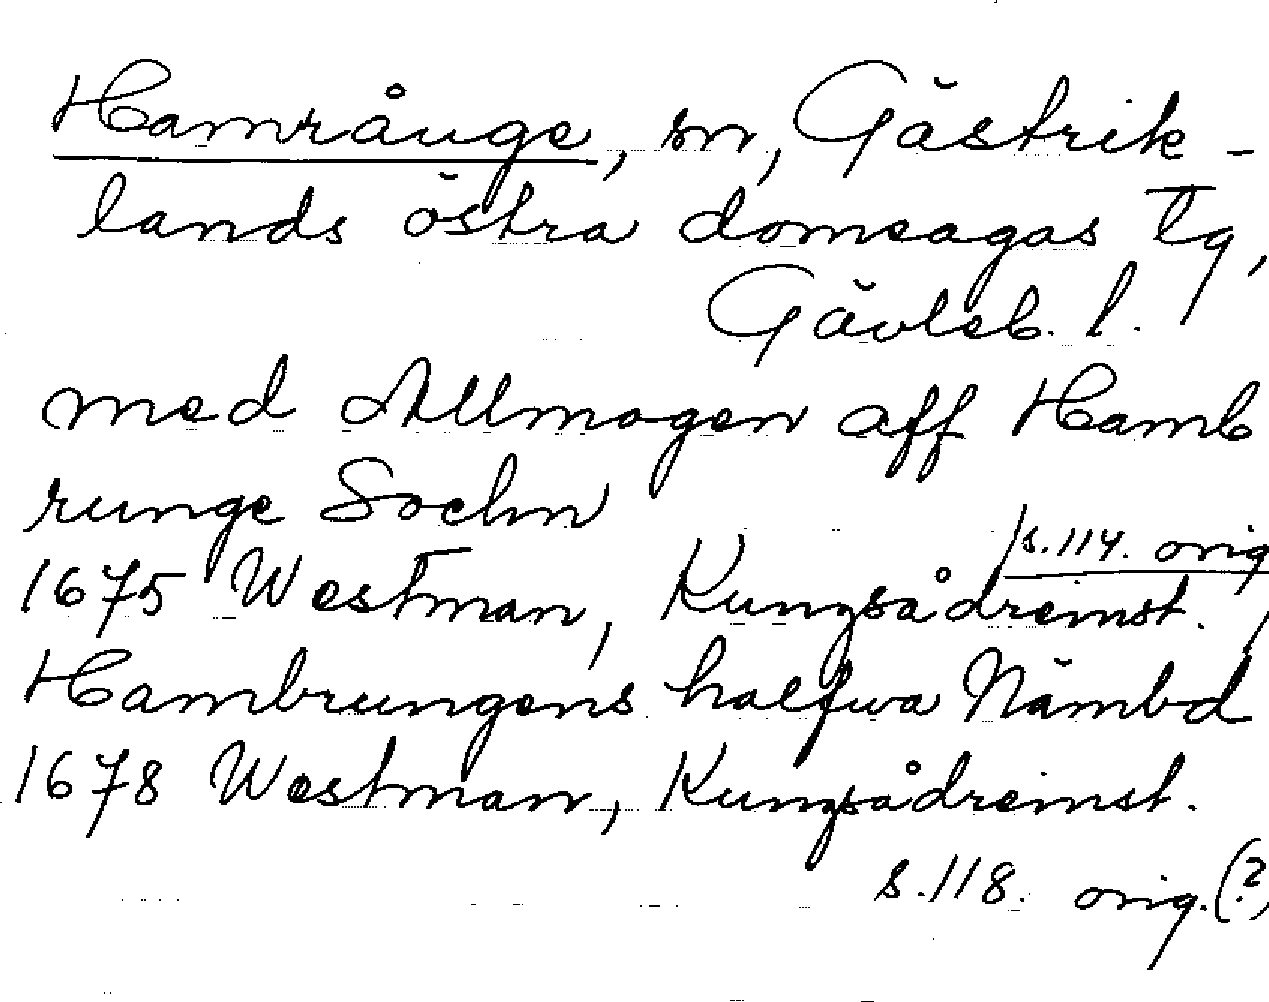 Hamrånge, sn, Gästrik-
lands östra domsagas tg,
Gävleb. l.
med Allmogen aff Hamb
runge Sochn
s. 114. orig
1675 Westman, Kungsådreinst.
Hambrungens halfwa Nämbd
1678 Westman, Kungsådreinst.
s. 118. orig. (?)